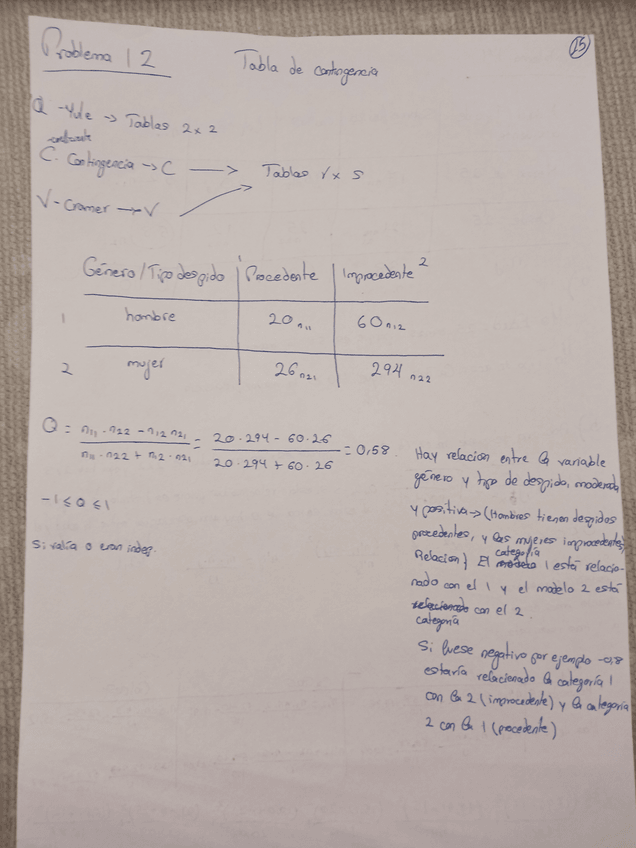 Problema 12
Tabla de contingencia
25
Q - Yule → Tablas 2x2
C. Contingencia → C → Tablas r x s
V - Cramer → V
Género/Tipo despido Procedente 1 Improcedente 2
1 hombre 20 n11 60 n12
2 mujer 26 n21 294 n22
Q = (n11 · n22 - n12 n21) / (n11 · n22 + n12 · n21) = (20 · 294 - 60 · 26) / (20 · 294 + 60 · 26) = 0,58
-1 ≤ Q ≤ 1
Si valía 0 eran indep.
Hay relacion entre la variable
género y tipo de despido, moderada
y positiva → (Hombres tienen despidos
procedentes, y las mujeres improcedentes)
Relacion} El categoría 1 está relacio-
nado con el 1 y el modelo 2 está
relacionado con el 2
categoría
Si fuese negativo por ejemplo -0,8
estaría relacionado la categoría 1
con la 2 (improcedente) y la categoria
2 con la 1 (procedente)